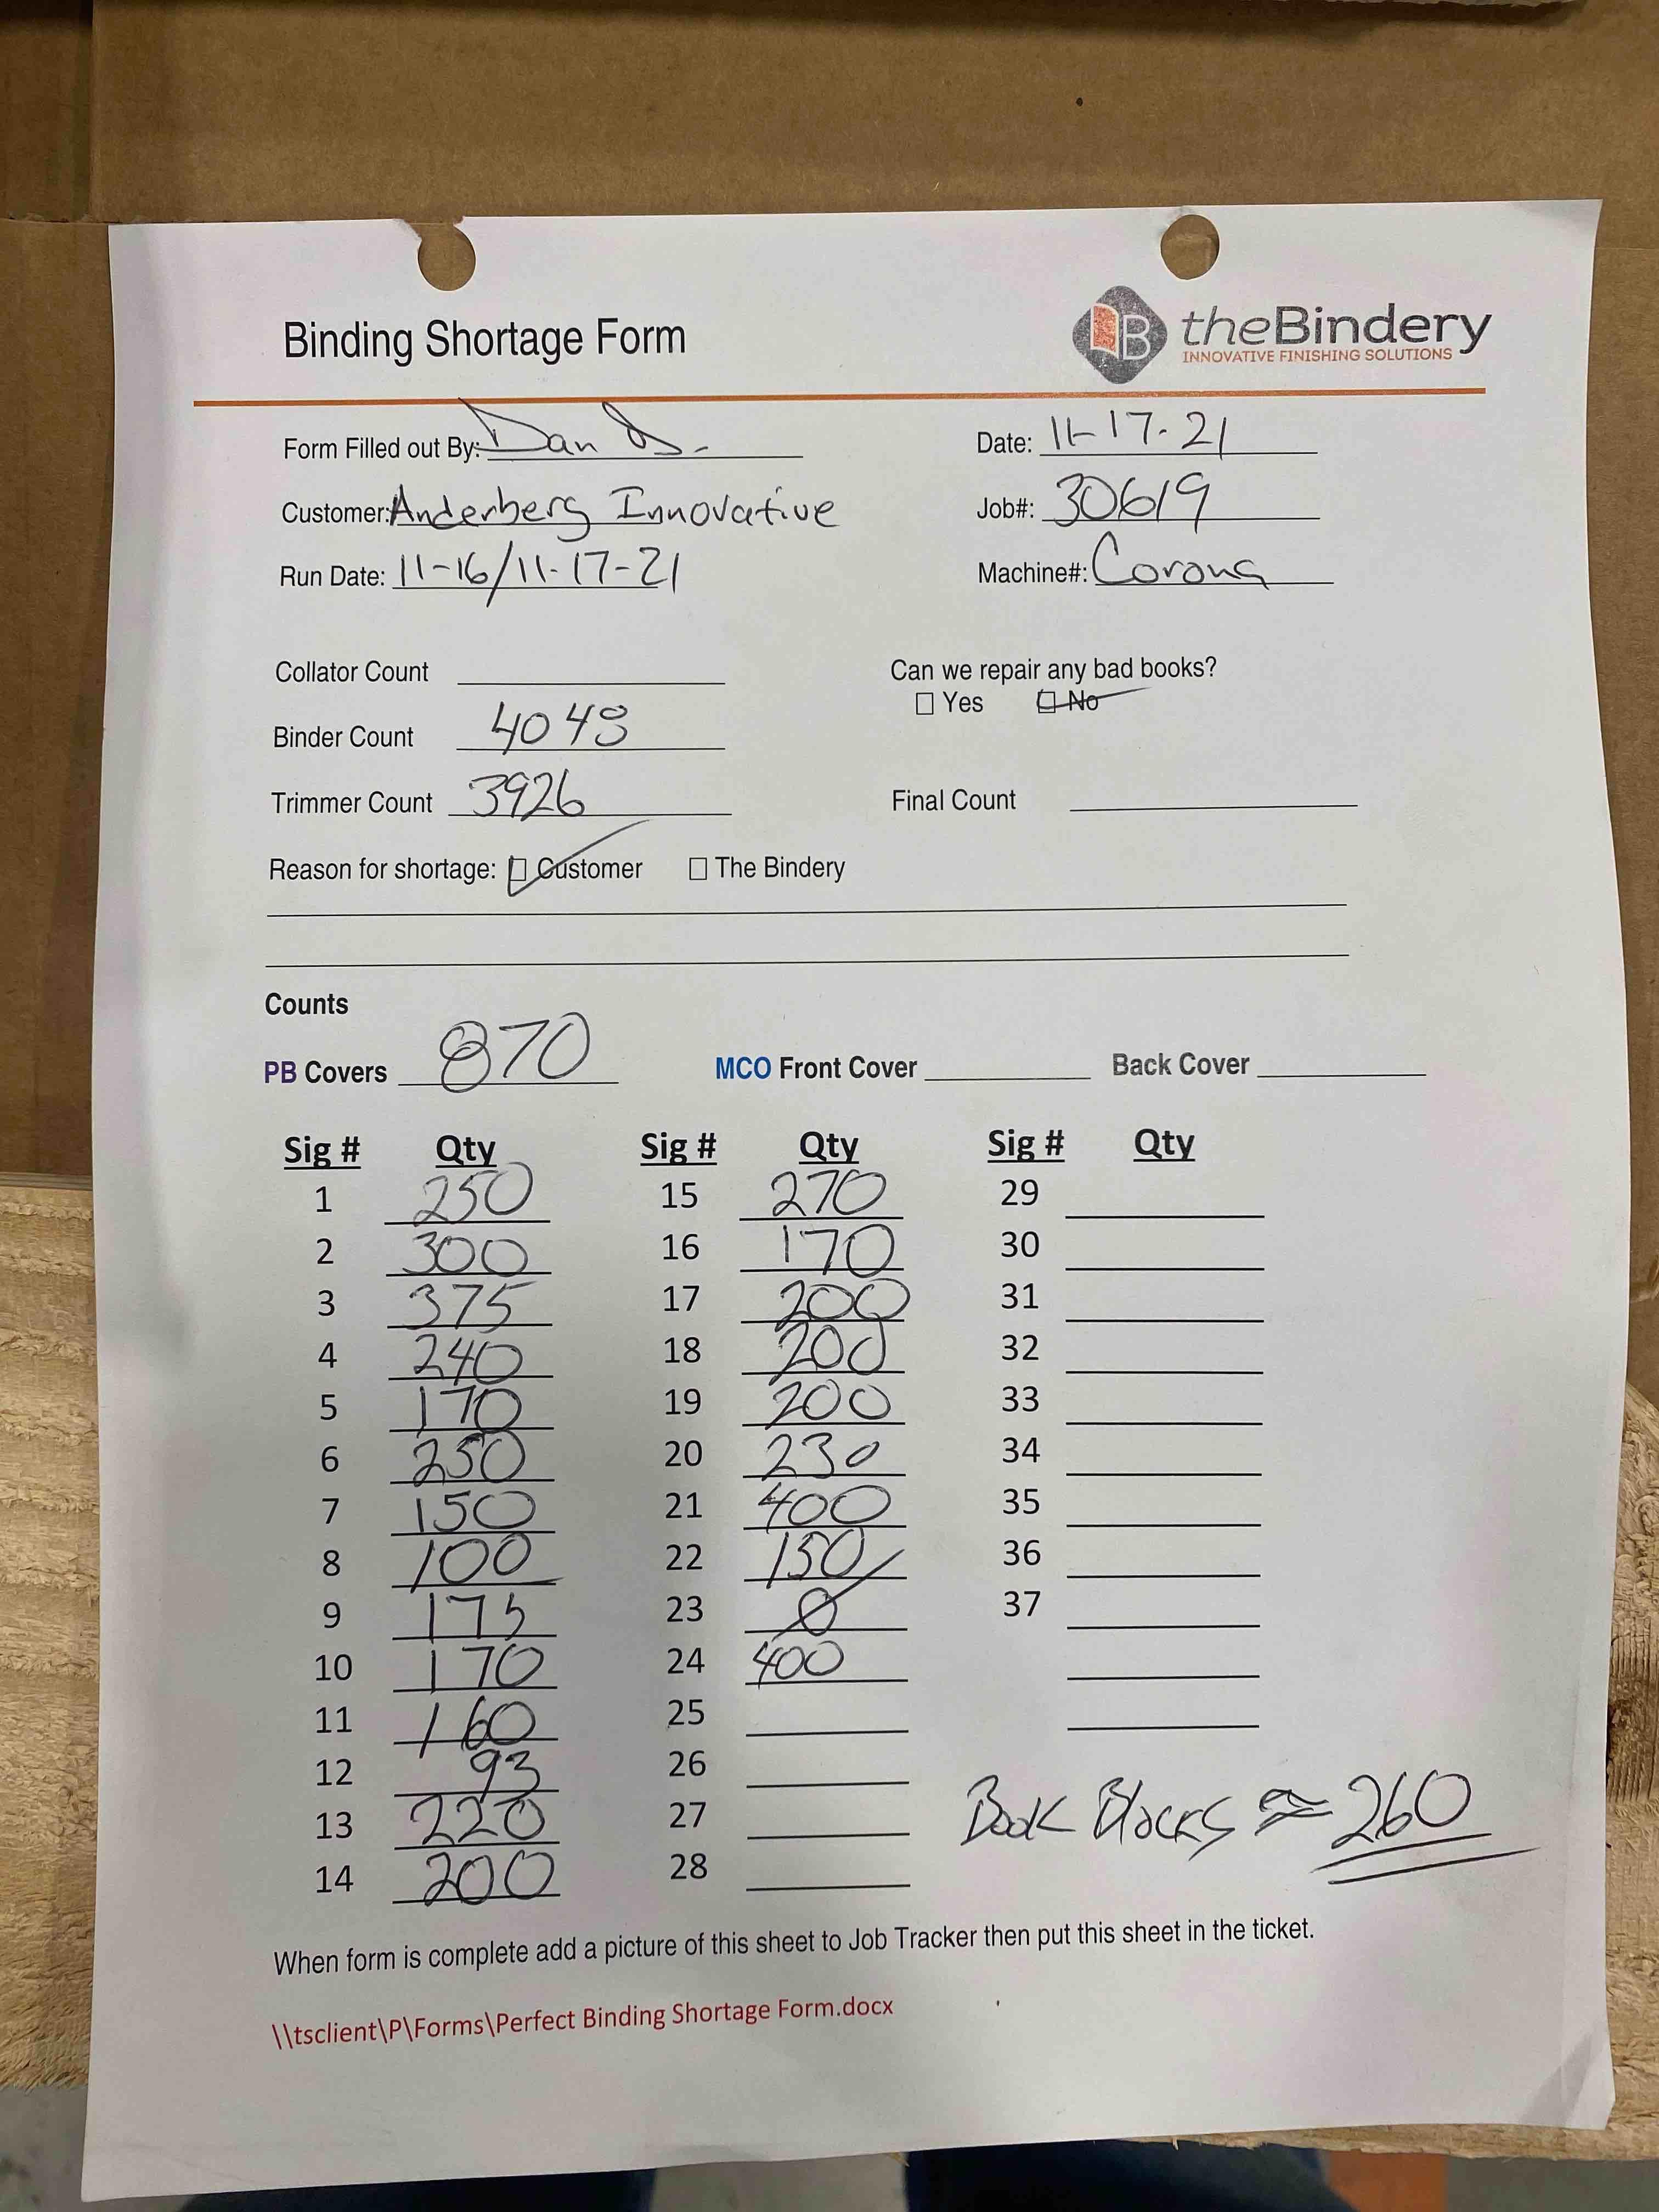 Binding Shortage Form
theBindery
INNOVATIVE FINISHING SOLUTIONS
Form Filled out By: Dan
Date: 11-17-21
Customer: Anderberg Innovative
Job#: 30619
Run Date: 11-16/11-17-21
Machine#: Corona
Collator Count
Can we repair any bad books?
Yes No
Binder Count 4048
Trimmer Count 3926
Final Count
Reason for shortage: Customer The Bindery
Counts
PB Covers 870 MCO Front Cover Back Cover
Sig # Qty Sig # Qty Sig # Qty
1 250 15 270 29
2 300 16 170 30
3 375 17 200 31
4 240 18 200 32
5 170 19 200 33
6 250 20 230 34
7 150 21 400 35
8 100 22 150 36
9 175 23 0 37
10 170 24 400
11 160 25
12 93 26
13 220 27
14 200 28
Book Blocks ≈ 260
When form is complete add a picture of this sheet to Job Tracker then put this sheet in the ticket.
\\tsclient\P\Forms\Perfect Binding Shortage Form.docx